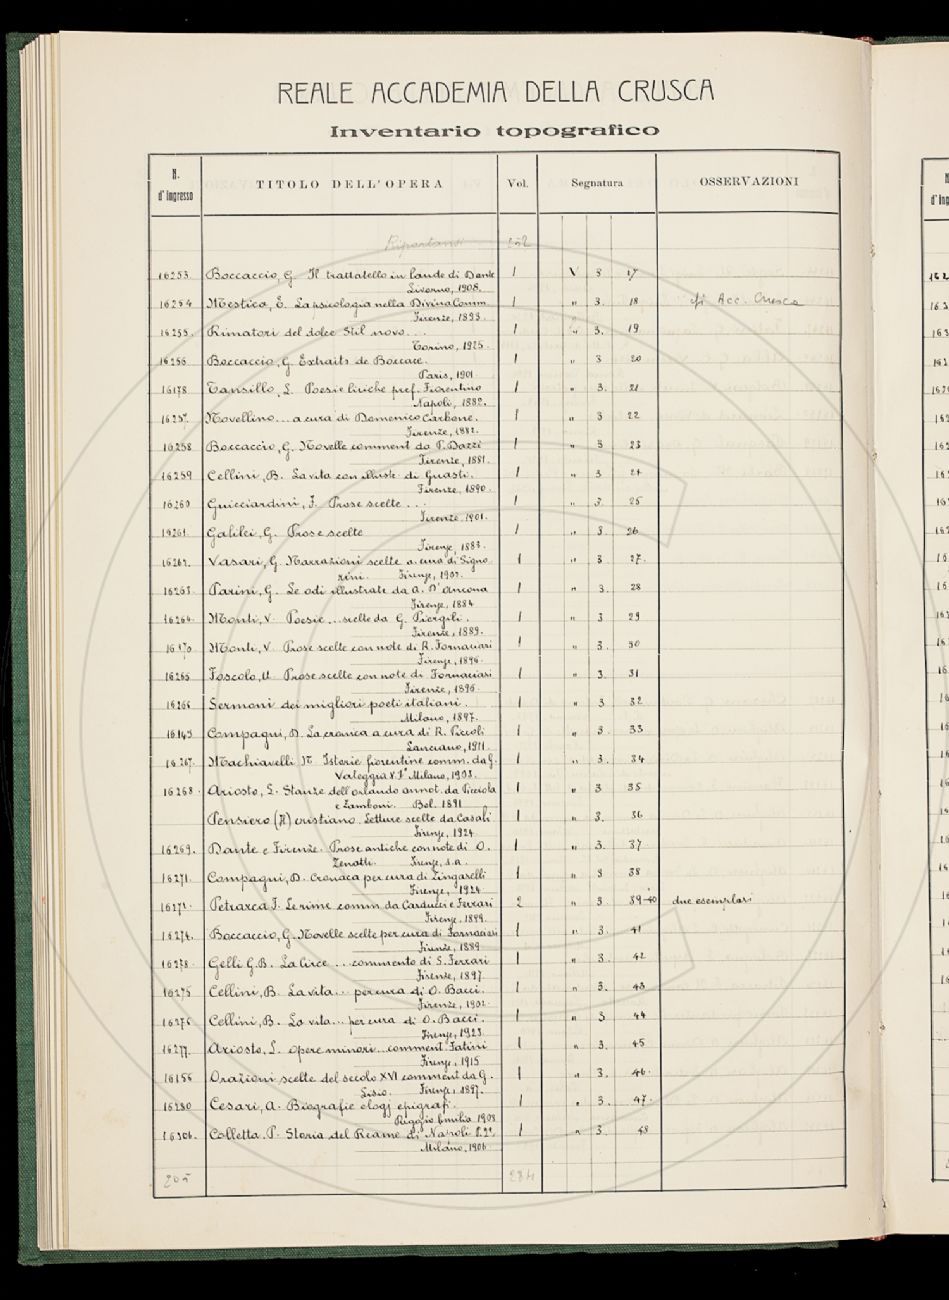 REALE ACCADEMIA DELLA CRUSCA
Inventario topografico
N. d'Ingresso TITOLO DELL'OPERA Vol. Segnatura OSSERVAZIONI
Riportansi 252
16253 Boccaccio, G. Il trattatello in laude di Dante 1 V 3 17
Livorno, 1908.
16254 Mestica, E. La psicologia nella Divina Comm. 1 " 3. 18 Acc. Crusca
Firenze, 1893.
16255. Rimatori del dolce stil novo... 1 " 3. 19
Torino, 1925.
16256 Boccaccio, G. Extraits de Boccace. 1 " 3 20
Paris, 1901.
16178 Tansillo, L. Poesie liriche pref. Fiorentino 1 " 3. 21
Napoli, 1882.
16257. Novellino... a cura di Domenico Carbone. 1 " 3 22
Firenze, 1882.
16258 Boccaccio, G. Novelle comment da P. Dazzi 1 " 3 23
Firenze, 1881.
16259 Cellini, B. La vita con illustr. di Guasti. 1 " 3 24
Firenze, 1890.
16260 Guicciardini, F. Prose scelte... 1 " 3. 25
Firenze, 1901.
16261. Galilei, G. Prose scelte 1 " 3. 26
Firenze, 1883.
16262. Vasari, G. Narrazioni scelte a cura di Signo- 1 " 3 27.
rini. Firenze, 1903.
16263 Parini, G. Le odi illustrate da A. D'Ancona 1 " 3. 28
Firenze, 1884
16264. Monti, V. Poesie... scelte da G. Piergili. 1 " 3 29
Firenze, 1889.
16170. Monti, V. Prose scelte con note di R. Fornaciari 1 " 3. 30
Firenze, 1896.
16265 Foscolo, U. Prose scelte con note di Fornaciari 1 " 3. 31
Firenze, 1896.
16266 Sermoni dei migliori poeti italiani. 1 " 3 32
Milano, 1897.
16145 Compagni, D. La cronica a cura di R. Piccoli 1 " 3. 33
Lanciano, 1911.
16267. Machiavelli N. Istorie fiorentine comm. da G. 1 " 3. 34
Valeggia V. I° Milano, 1903.
16268. Ariosto, L. Stanze dell'orlando annot. da Picciola 1 " 3 35
e Zamboni. Bol. 1891
Pensiero (Il) cristiano. Letture scelte da Casati 1 " 3. 36
Firenze, 1924
16269. Dante e Firenze. Prose antiche con note di O. 1 " 3. 37
Zenatti. Firenze, s.a.
16271. Compagni, D. Cronaca per cura di Zingarelli 1 " 3 38
Firenze, 1924
16272. Petrarca F. Le rime comm. da Carducci e Ferrari 2 " 3 39-40 due esemplari
Firenze, 1899.
16274. Boccaccio, G. Novelle scelte per cura di Fornaciari 1 " 3. 41
Firenze, 1889
16278. Gelli G.B. La Circe... commento di S. Ferrari 1 " 3. 42
Firenze, 1897.
16275 Cellini, B. La vita... per cura di O. Bacci. 1 " 3. 43
Firenze, 1902.
16276 Cellini, B. La vita... per cura di O. Bacci. 1 " 3 44
Firenze, 1923
16277. Ariosto, L. opere minori... comment. Fatini 1 " 3. 45
Firenze, 1915
16156 Orazioni scelte del secolo XVI comment da G. 1 " 3. 46.
Lisio. Firenze, 1897.
16280 Cesari, A. Biografie elogj epigrafi. 1 " 3. 47.
Reggio Emilia 1903
16306. Colletta. P. Storia del Reame di Napoli 1 " 3. 48
Milano, 1906
205 284